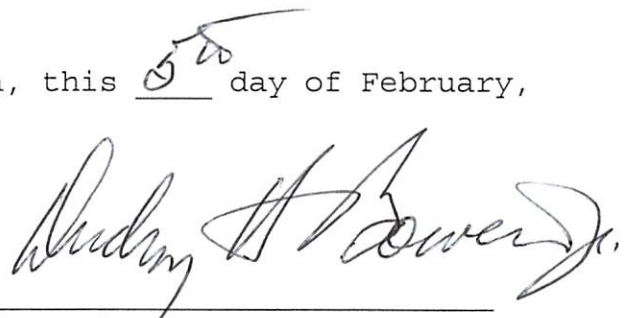 , this 5th day of February,
Dudley H Bowen Jr.